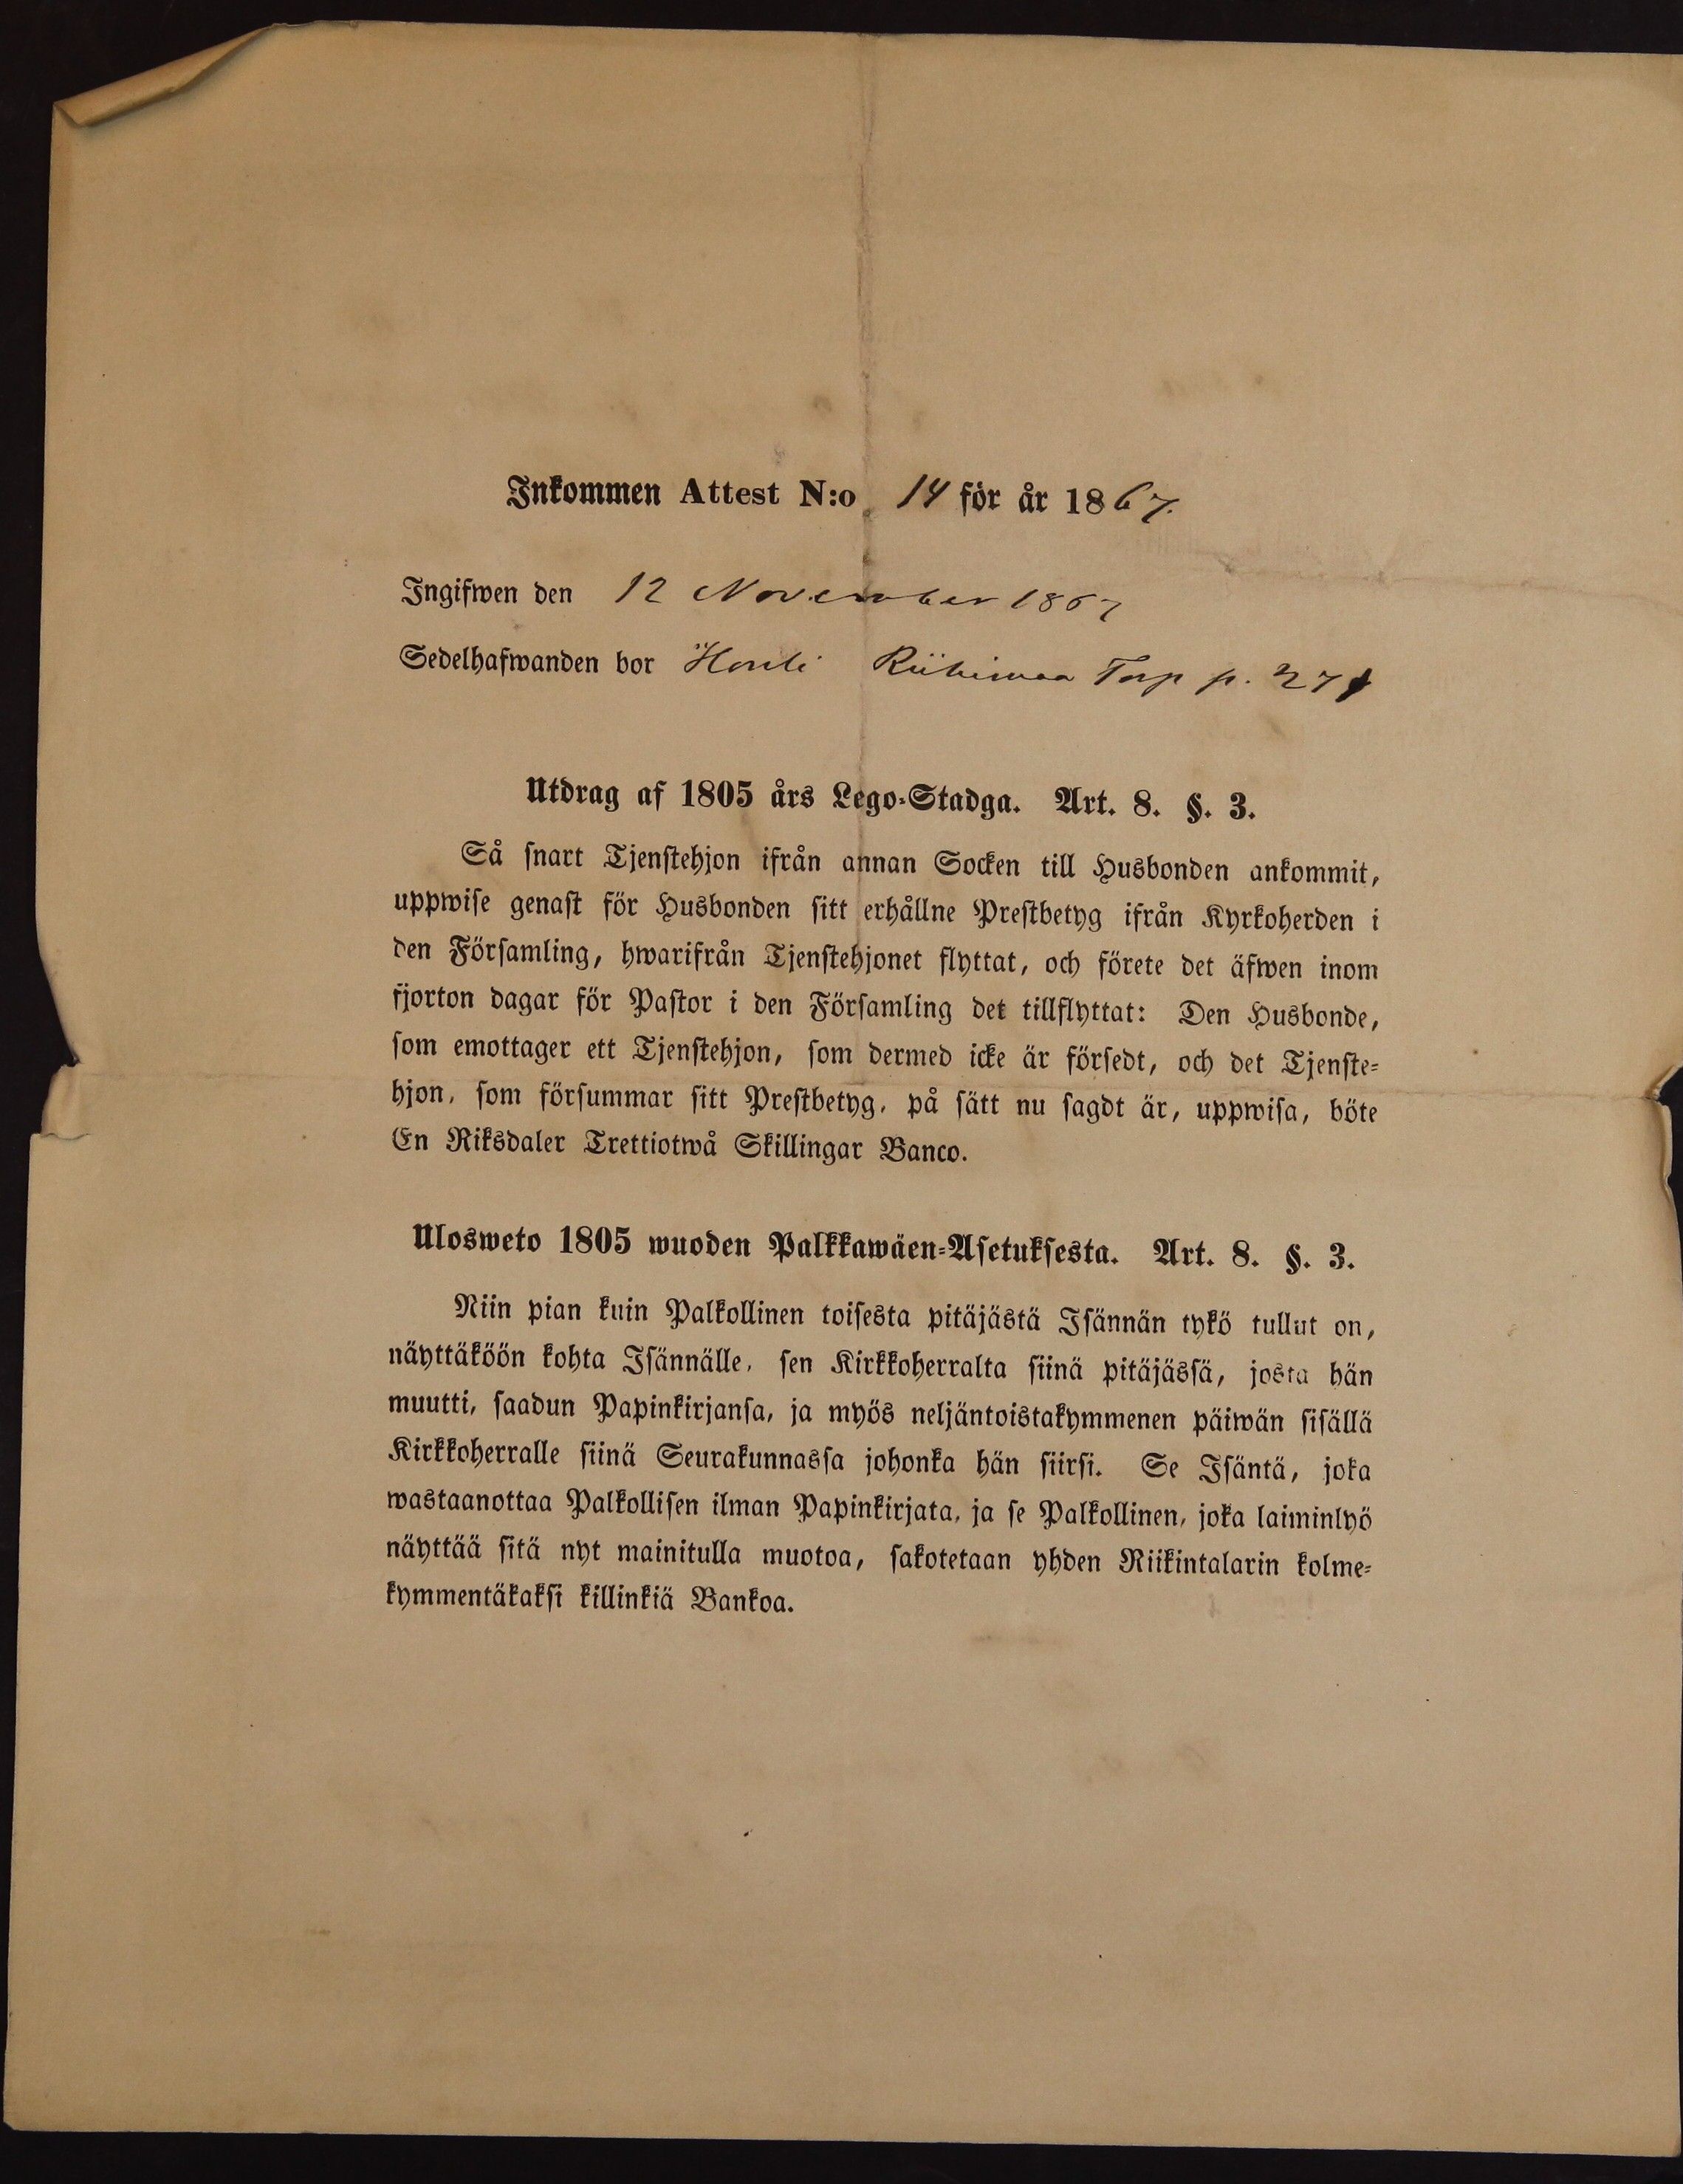 Inkommen Attest N:o 14 för år 1867.
Ingifwen den 12 November 1867
Sedelhafwanden bor Riihimaa Torp p. 271
Utdrag af 1805 års Lego-Stadga. Art. 8. §. 3.
Så snart Tjenstehjon ifrån annan Socken till Husbonden ankommit,
uppwise genast för Husbonden sitt erhållne Prestbetyg ifrån Kyrkoherden i
den Församling, hwarifrån Tjenstehjonet flyttat, och förete det äfwen inom
fjorton dagar för Pastor i den Församling det tillflyttat: Den Husbonde,
som emottager ett Tjenstehjon, som dermed icke är försedt, och det Tjenste-
hjon, som försummar sitt Prestbetyg, på sätt nu sagdt är, uppwisa, böte
En Riksdaler Trettiotwå Skillingar Banco.
Ulosweto 1805 wuoden Palkkawäen-Asetuksesta. Art. 8. §. 3.
Niin pian kuin Palkollinen toisesta pitäjästä Isännän tykö tullut on,
näyttäköön kohta Isännälle, sen Kirkkoherralta siinä pitäjässä, josta hän
muutti, saadun Papinkirjansa, ja myös neljäntoistakymmenen päiwän sisällä
Kirkkoherralle siinä Seurakunnassa johonka hän siirsi. Se Isäntä, joka
wastaanottaa Palkollisen ilman Papinkirjata, ja se Palkollinen, joka laiminlyö
näyttää sitä nyt mainitulla muotoa, sakotetaan yhden Riikintalarin kolme-
kymmentäkaksi killinkiä Bankoa.